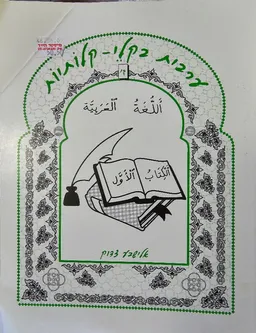 ערבית בקלי-קלותיות
ד'
اَللُّغَةُ الْعَرَبِيَّة
اَلْكِتَابُ الْأَوَّل
אלישבע צדוק